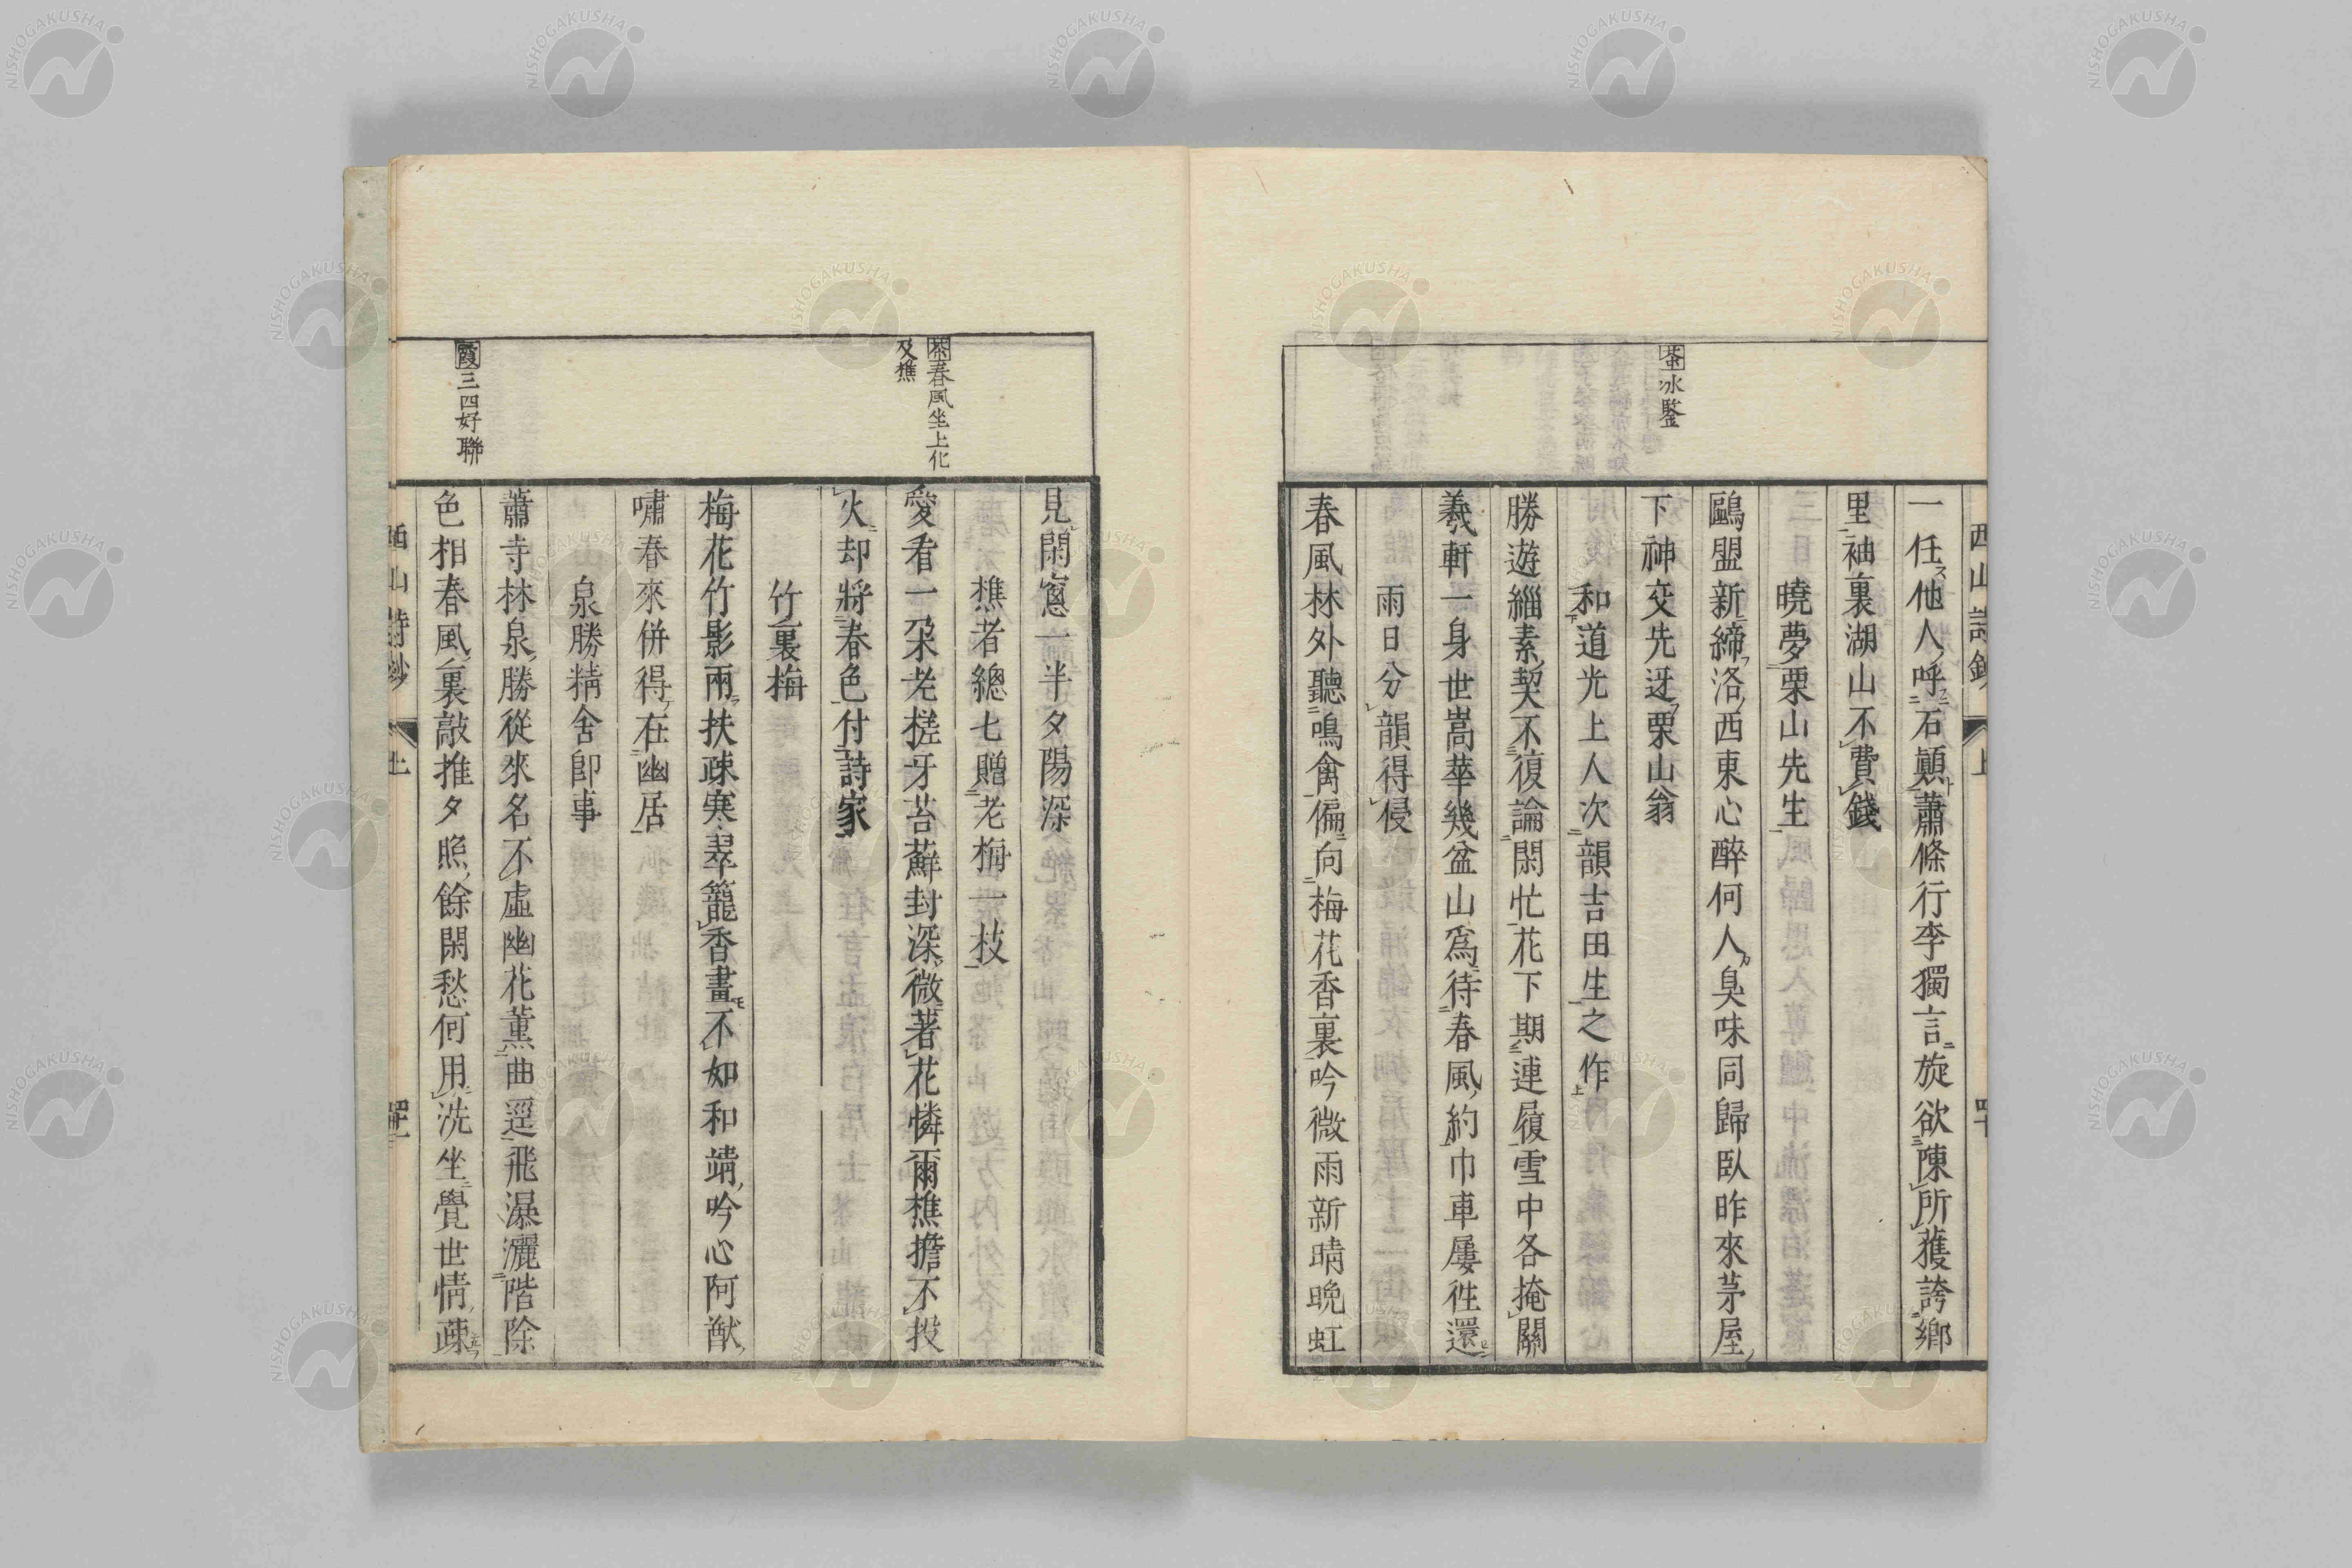 西山詩鈔 上 四十
一任他人呼石顛蕭條行李獨言旋欲陳所獲誇鄉
里袖裏湖山不費錢
曉夢栗山先生
鷗盟新締洛西東心醉何人臭味同歸臥昨來茅屋
下神交先迓栗山翁
和道光上人次韻吉田生之作
勝遊緇素契不復論閑忙花下期連履雪中各掩關
羲軒一身世嵩華幾盆山爲待春風約巾車屢徃還
雨日分韻得侵
春風林外聽鳴禽偏向梅花香裏吟微雨新晴晩虹
茶冰鑒
見閑窻一半夕陽深
樵者總七贈老梅一枝
愛看一朶老槎牙苔蘚封深微著花憐爾樵擔不投
火却將春色付詩家
竹裏梅
梅花竹影兩扶疎寒翠籠香畫不如和靖吟心阿猷
嘯春來併得在幽居
泉勝精舍卽事
蕭寺林泉勝從來名不虛幽花薰曲逕飛瀑灑階除
色相春風裏敲推夕照餘閑愁何用洗坐覺世情疎
茶春風坐上化
及樵
霞三四好聯
西山詩鈔 上
NISHOGAKUSHA